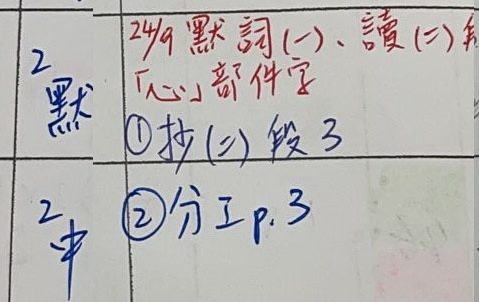 24/9 默詞(一)、讀(二)
「心」部件字
2 默
①抄(二)段3
2 中
②分工p.3